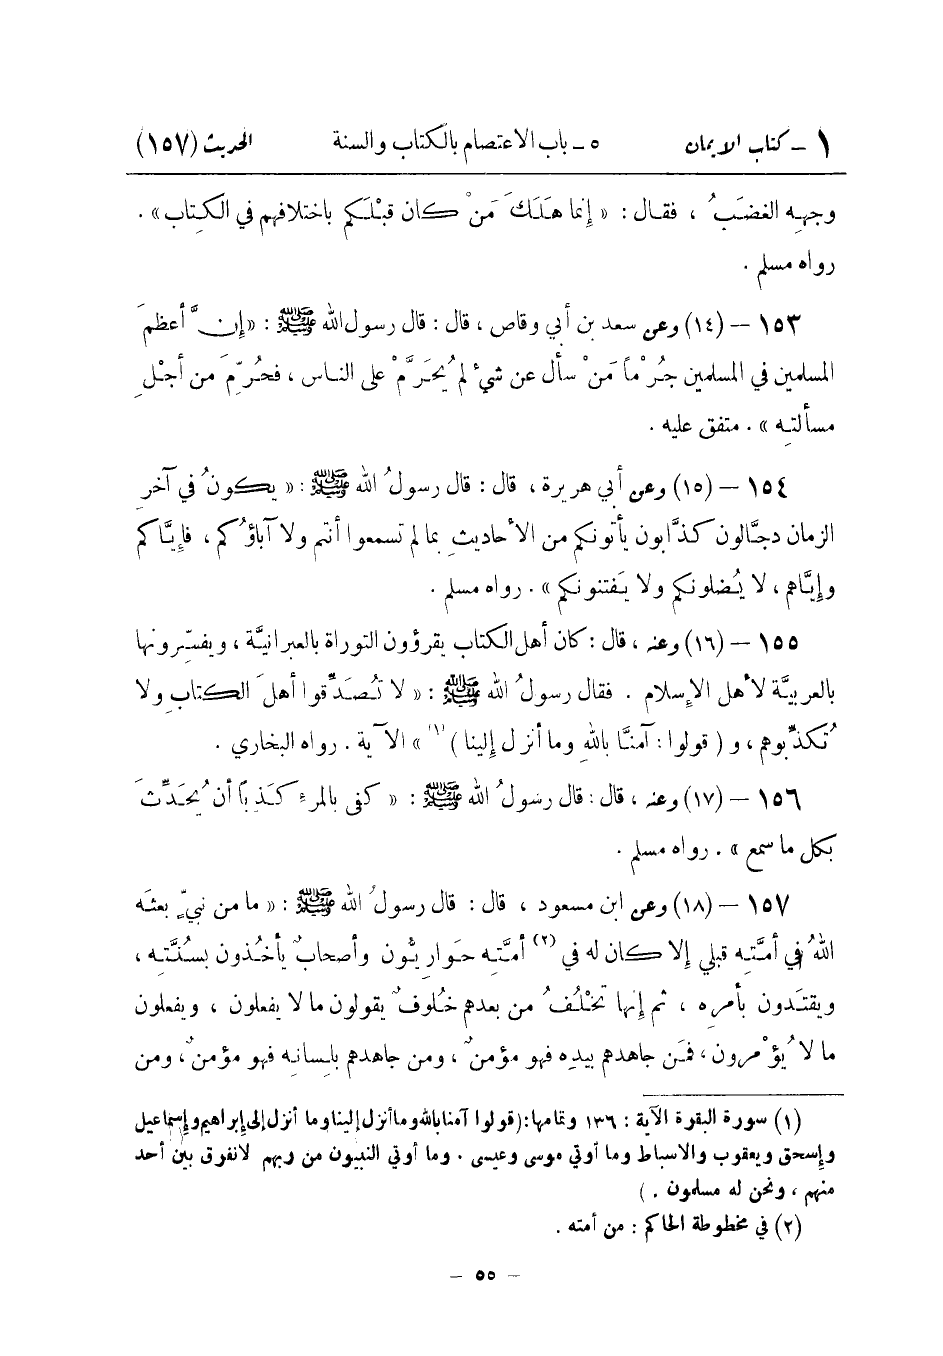 ١ ـ كتاب الايمان ٥ ـ باب الاعتصام بالكتاب والسنة الحديث (١٥٧)
وجهِه الغضَبُ ، فقال : « إِنما هَلَكَ مَنْ كان قبْلَكم باختلافِهم في الكِتاب » .
رواه مسلم .
١٥٣ – (١٤) وعن سعد بن أبي وقاص ، قال : قال رسول الله ﷺ : « إِنَّ أعظمَ
المسلمين في المسلمين جُرْماً مَنْ سأل عن شيءٍ لم يُحَرَّمْ على الناس ، فحُرِّمَ من أجْلِ
مسألتِه » . متفق عليه .
١٥٤ – (١٥) وعن أبي هريرة ، قال : قال رسولُ الله ﷺ : « يكونُ في آخرِ
الزمان دجَّالون كذَّابون يأتونكم من الأحاديثِ بما لم تسمعوا أنتم ولا آباؤُكم ، فإِيَّاكم
وإِيَّاهم ، لا يُضلونكم ولا يَفتنونكم » . رواه مسلم .
١٥٥ – (١٦) وعنه ، قال : كان أهل الكتاب يقرؤون التوراة بالعبرانيَّة ، ويفسِّرونها
بالعربيَّة لأهل الإِسلام . فقال رسولُ الله ﷺ : « لا تُصَدِّقوا أهلَ الكتابِ ولا
تُكذِّبوهم ، و ( قولوا : آمنَّا باللهِ وما أنزل إِلينا ) (١) » الآية . رواه البخاري .
١٥٦ – (١٧) وعنه ، قال : قال رسولُ الله ﷺ : « كفى بالمرءِ كذباً أن يُحَدِّثَ
بكل ما سمع » . رواه مسلم .
١٥٧ – (١٨) وعن ابن مسعود ، قال : قال رسولُ الله ﷺ : « ما من نبيٍّ بعثَه
اللهُ في أمَّتِه قبلي إلا كان له في (٢) أمَّتِه حَوارِيُّون وأصحابٌ يأخُذون بسُنَّتِه ،
ويقتَدون بأمرِه ، ثم إِنها تَخْلُفُ من بعدِهم خُلوفٌ يقولون ما لا يفعلون ، ويفعلون
ما لا يُؤْمرون ، فمَن جاهدهم بيدِه فهو مؤمنٌ ، ومن جاهدهم بلِسانِه فهو مؤمنٌ ، ومن
(١) سورة البقرة الآية : ١٣٦ وتمامها : ( قولوا آمنا بالله وما أنزل إلينا وما أنزل إلى إبراهيم وإسماعيل
وإسحق ويعقوب والاسباط وما أوتي موسى وعيسى . وما أوتي النبيون من ربهم لانفرق بين أحد
منهم ، ونحن له مسلمون . )
(٢) في مخطوطة الحاكم : من أمته .
– ٥٥ –